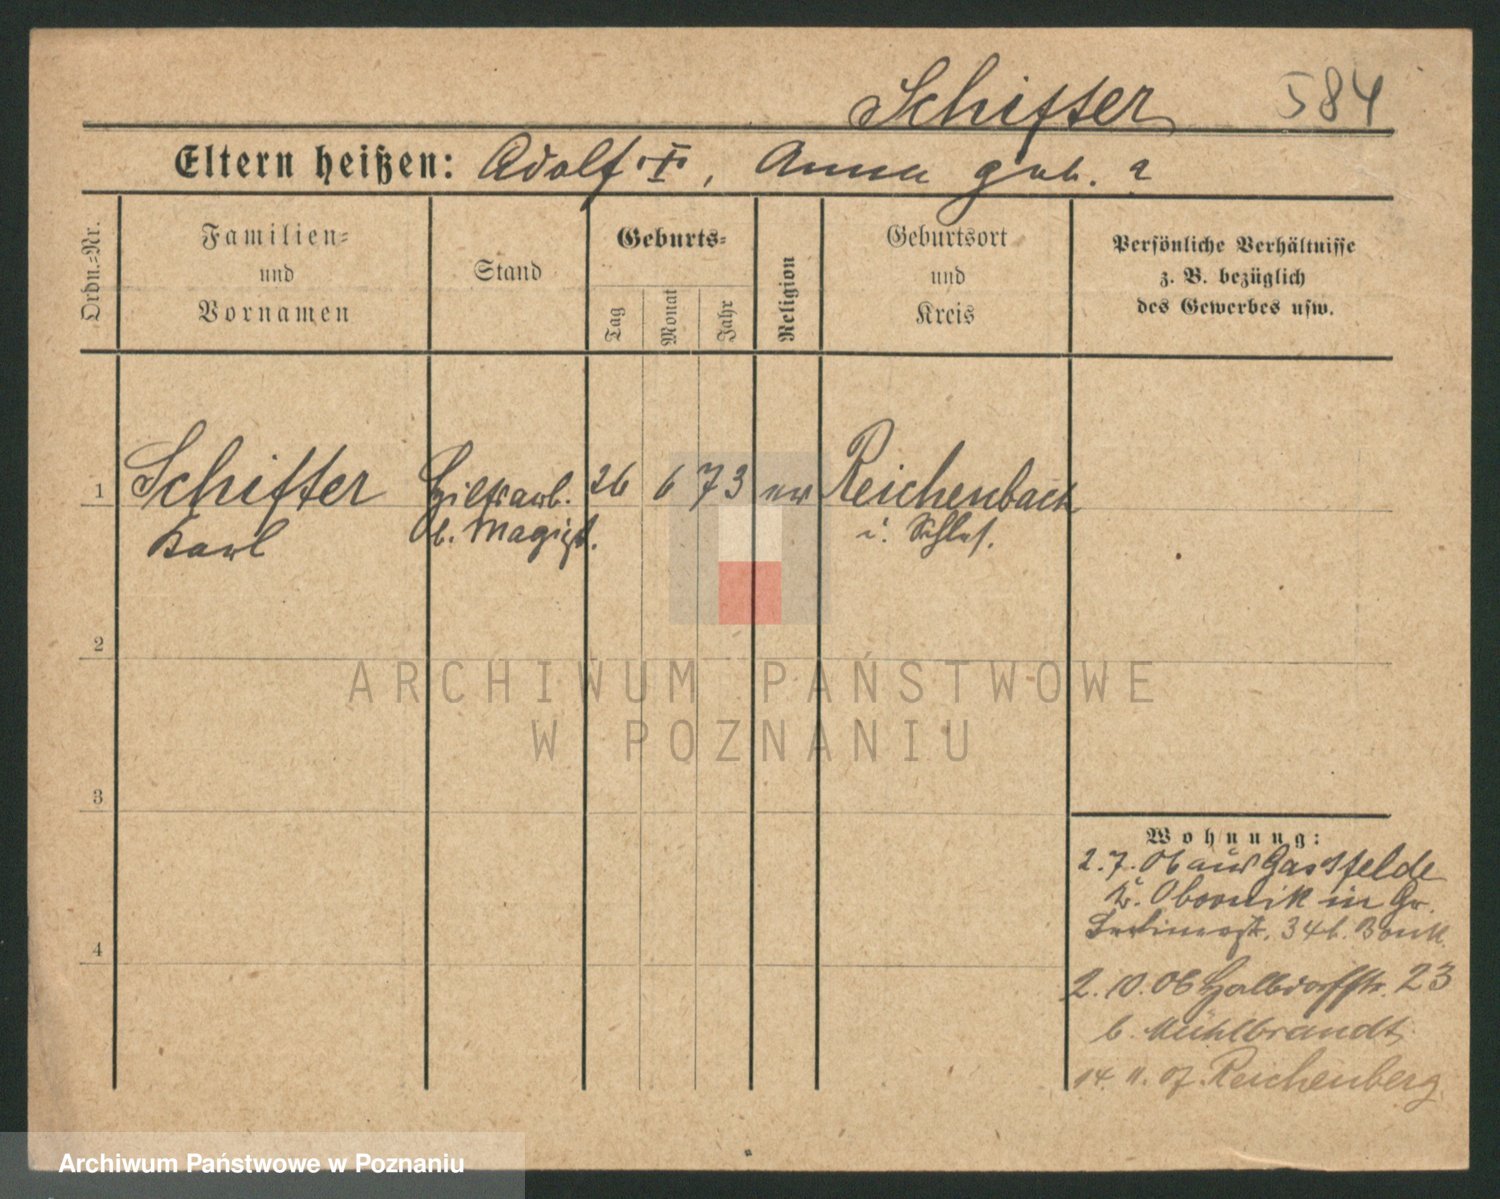 Schifter 584
Eltern heißen: Adolf †, Anna geb. ?
Ordn.=Nr.
Familien=
und
Vornamen
Stand
Geburts=
Tag
Monat
Jahr
Religion
Geburtsort
und
Kreis
Persönliche Verhältnisse
z. B. bezüglich
des Gewerbes usw.
1 Schifter Hilfsarb. 26 6 73 ev Reichenbach
Karl b. Magist. i. Schles.
2
3
4
Wohnung:
2.7.06 aus Gastfelde
Kr. Obornik in Gr.
Berlinerstr. 34 b. Bonk
2.10.06 Halbdorfstr. 23
b. Mühlbrandt
14.11.07 Reichenberg
ARCHIWUM PAŃSTWOWE
W POZNANIU
Archiwum Państwowe w Poznaniu